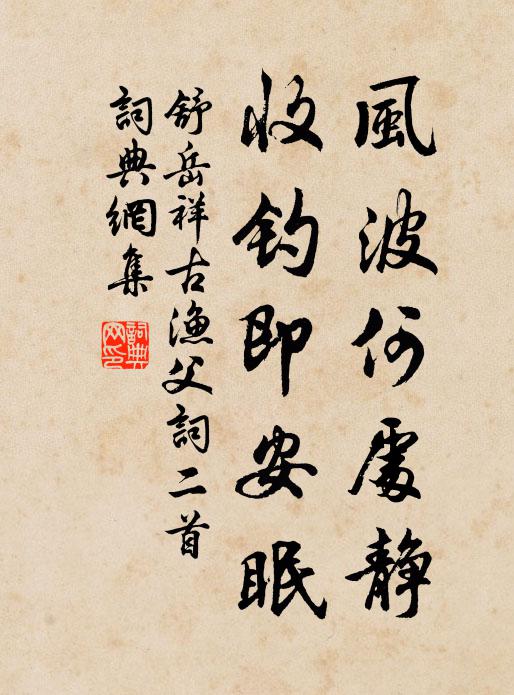 風波何處靜
收釣即安眠
舒岳祥古漁父詞二首
詞典網集
詞典
网印